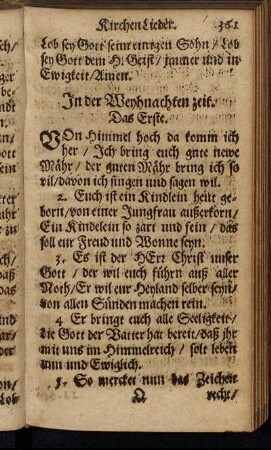 Kirchen Lieder. 361
Lob sey Gott seinr einigen Sohn / Lob
sey Gott dem H. Geist / jmmer und in
Ewigkeit / Amen.
In der Weyhnachten zeit.
Das Erste.
VOn Himmel hoch da komm ich
her / Ich bring euch gute newe
Mähr / der guten Mähr bring ich so
vil / davon ich singen und sagen wil.
2. Euch ist ein Kindlein heut ge-
born / von einer Jungfrau außerkorn /
Ein Kindelein so zart und fein / das
soll eur Freud und Wonne seyn.
3. Es ist der HErr Christ unser
Gott / der wil euch führn auß aller
Noth / Er wil eur Heyland selber seyn /
von allen Sünden machen rein.
4 Er bringt euch alle Seeligkeit /
die Gott der Vatter hat bereit / daß jhr
mit uns im Himmelreich / solt leben
nun und Ewiglich.
5. So mercket nun das Zeichen
Q recht /